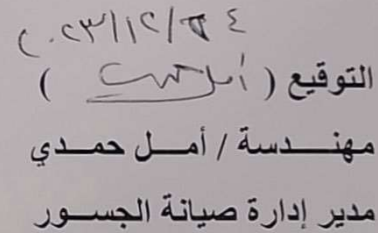 ٢٠٢٣/١٢/٢٤
التوقيع ( أمل حمدي )
مهندسة / أمل حمدي
مدير إدارة صيانة الجسور